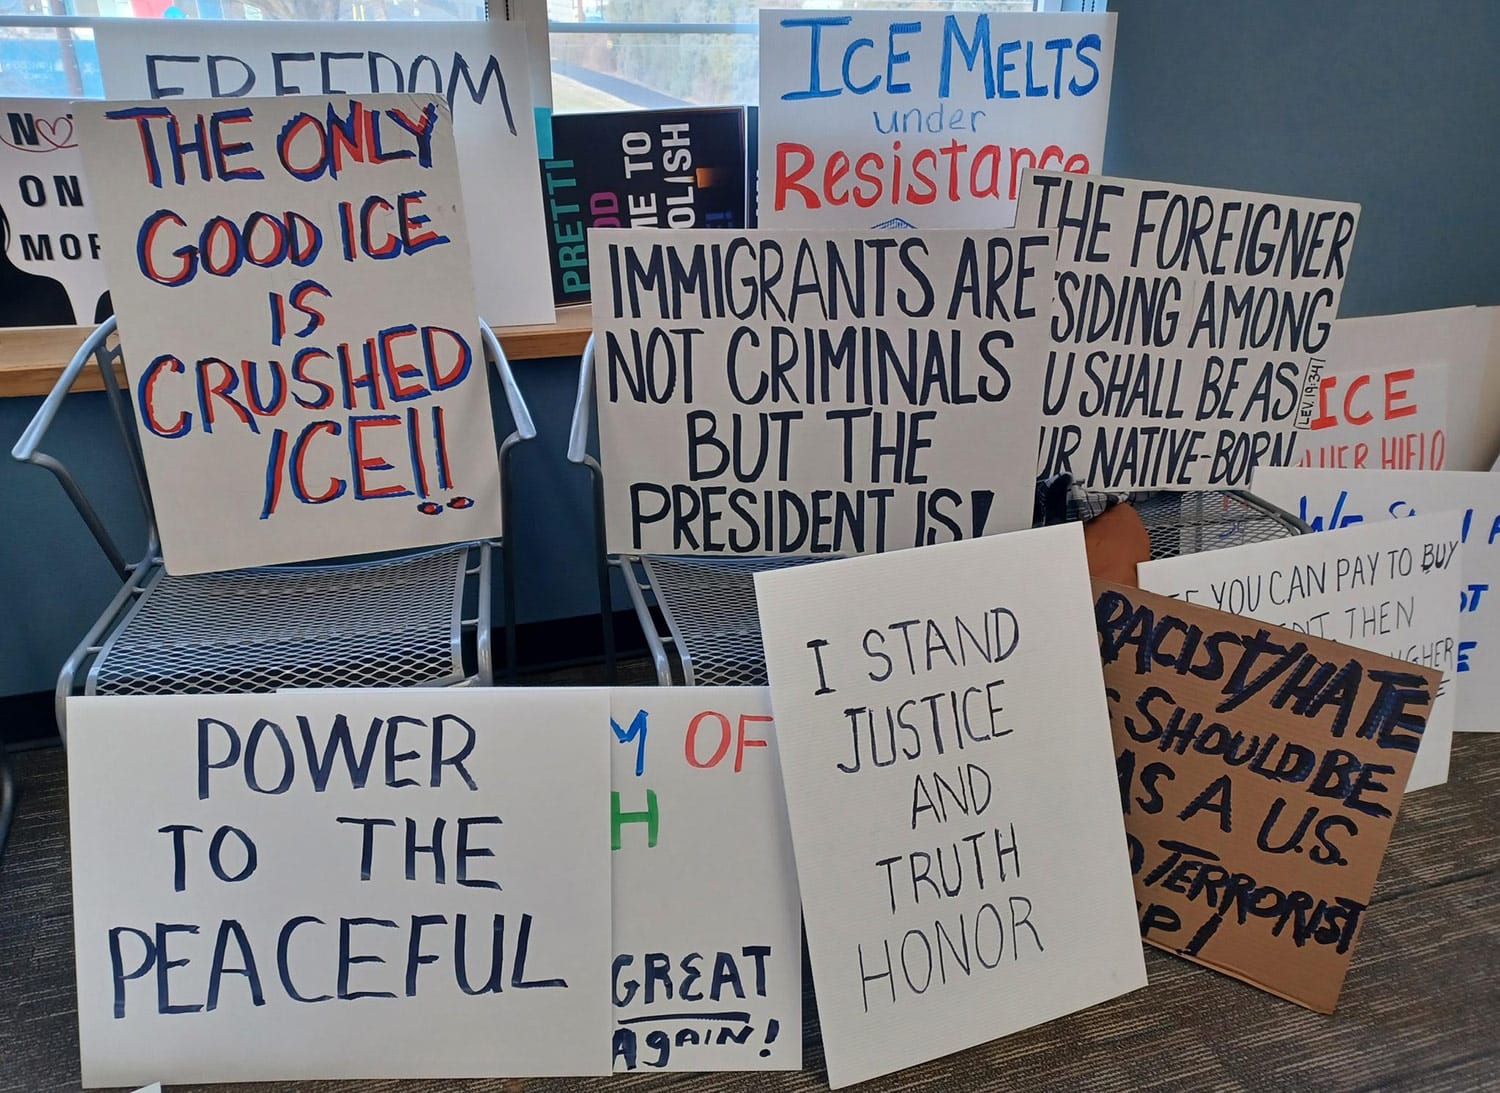 FREEDOM
NOT
ON
MOR
THE ONLY
GOOD ICE
IS
CRUSHED
ICE!!
PRETTI
ME TO
OLISH
ICE MELTS
under
Resistance
IMMIGRANTS ARE
NOT CRIMINALS
BUT THE
PRESIDENT IS!
THE FOREIGNER
SIDING AMONG
U SHALL BE AS
UR NATIVE-BORN
LEV. 19:34
ICE
YOU CAN PAY TO BUY
THEN
POWER
TO THE
PEACEFUL
M OF
H
GREAT
AgAIN!
I STAND
JUSTICE
AND
TRUTH
HONOR
RACIST/HATE
SHOULD BE
AS A U.S.
TERRORIST
P!